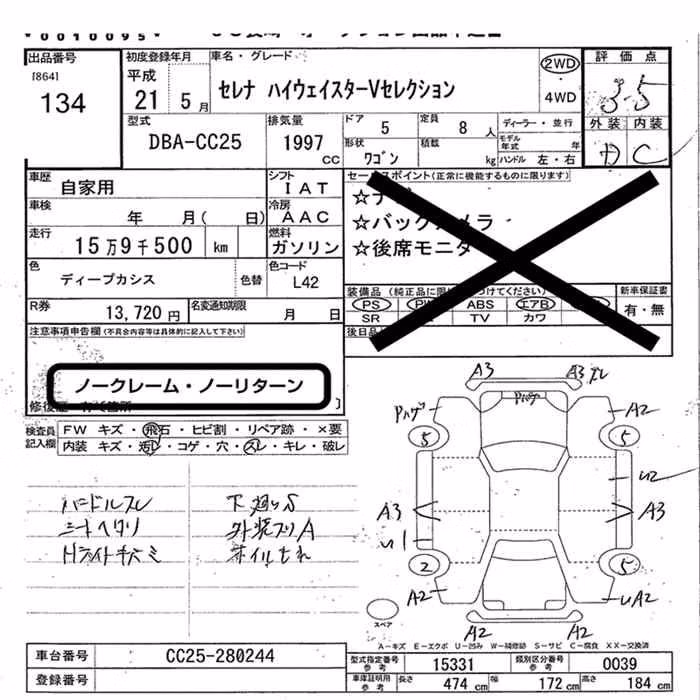 0010095
出品番号
[864]
134
初度登録年月
平成
21 5月
車名・グレード
セレナ ハイウェイスターVセレクション
2WD
4WD
評価点
3.5
外装 内装
C
型式
DBA-CC25
排気量
1997
cc
ドア
5
定員
8人
ディーラー・並行
モデル年式 年
形状
ワゴン
積載
kg
ハンドル 左・右
車歴
自家用
シフト
IAT
車検
年 月( 日)
冷房
AAC
走行
15万9千500 km
燃料
ガソリン
色
ディープカシス
色替
色コード
L42
R券
13,720円
名変通知期限
月 日
セールスポイント(正常に機能するものに限ります)
☆ナビ
☆バックカメラ
☆後席モニタ
装備品 (純正品に限 つけてください)
PS PW ABS エアB
SR TV カワ
新車保証書
有・無
後日品
注意事項申告欄(不具合内容等は具体的に記入して下さい)
ノークレーム・ノーリターン
検査員
記入欄
FW キズ・飛石・ヒビ割・リペア跡・×要
内装 キズ・汚レ・コゲ・穴・スレ・キレ・破レ
ハンドルスレ
シートヘタリ
下廻りS
A3 A3
Pハゲ Pハゲ A2
5 5
U2
A3 A3
U1
2 5
A2 UA2
A2 A2
スペア
A-キズ E-エクボ U-凹み W-補修跡 S-サビ C-腐食 XX-交換済
車台番号
CC25-280244
登録番号
型式指定番号
参考
15331
類別区分番号
参考
0039
車庫証明用
参考
長さ
474 cm
幅
172 cm
高さ
184 cm